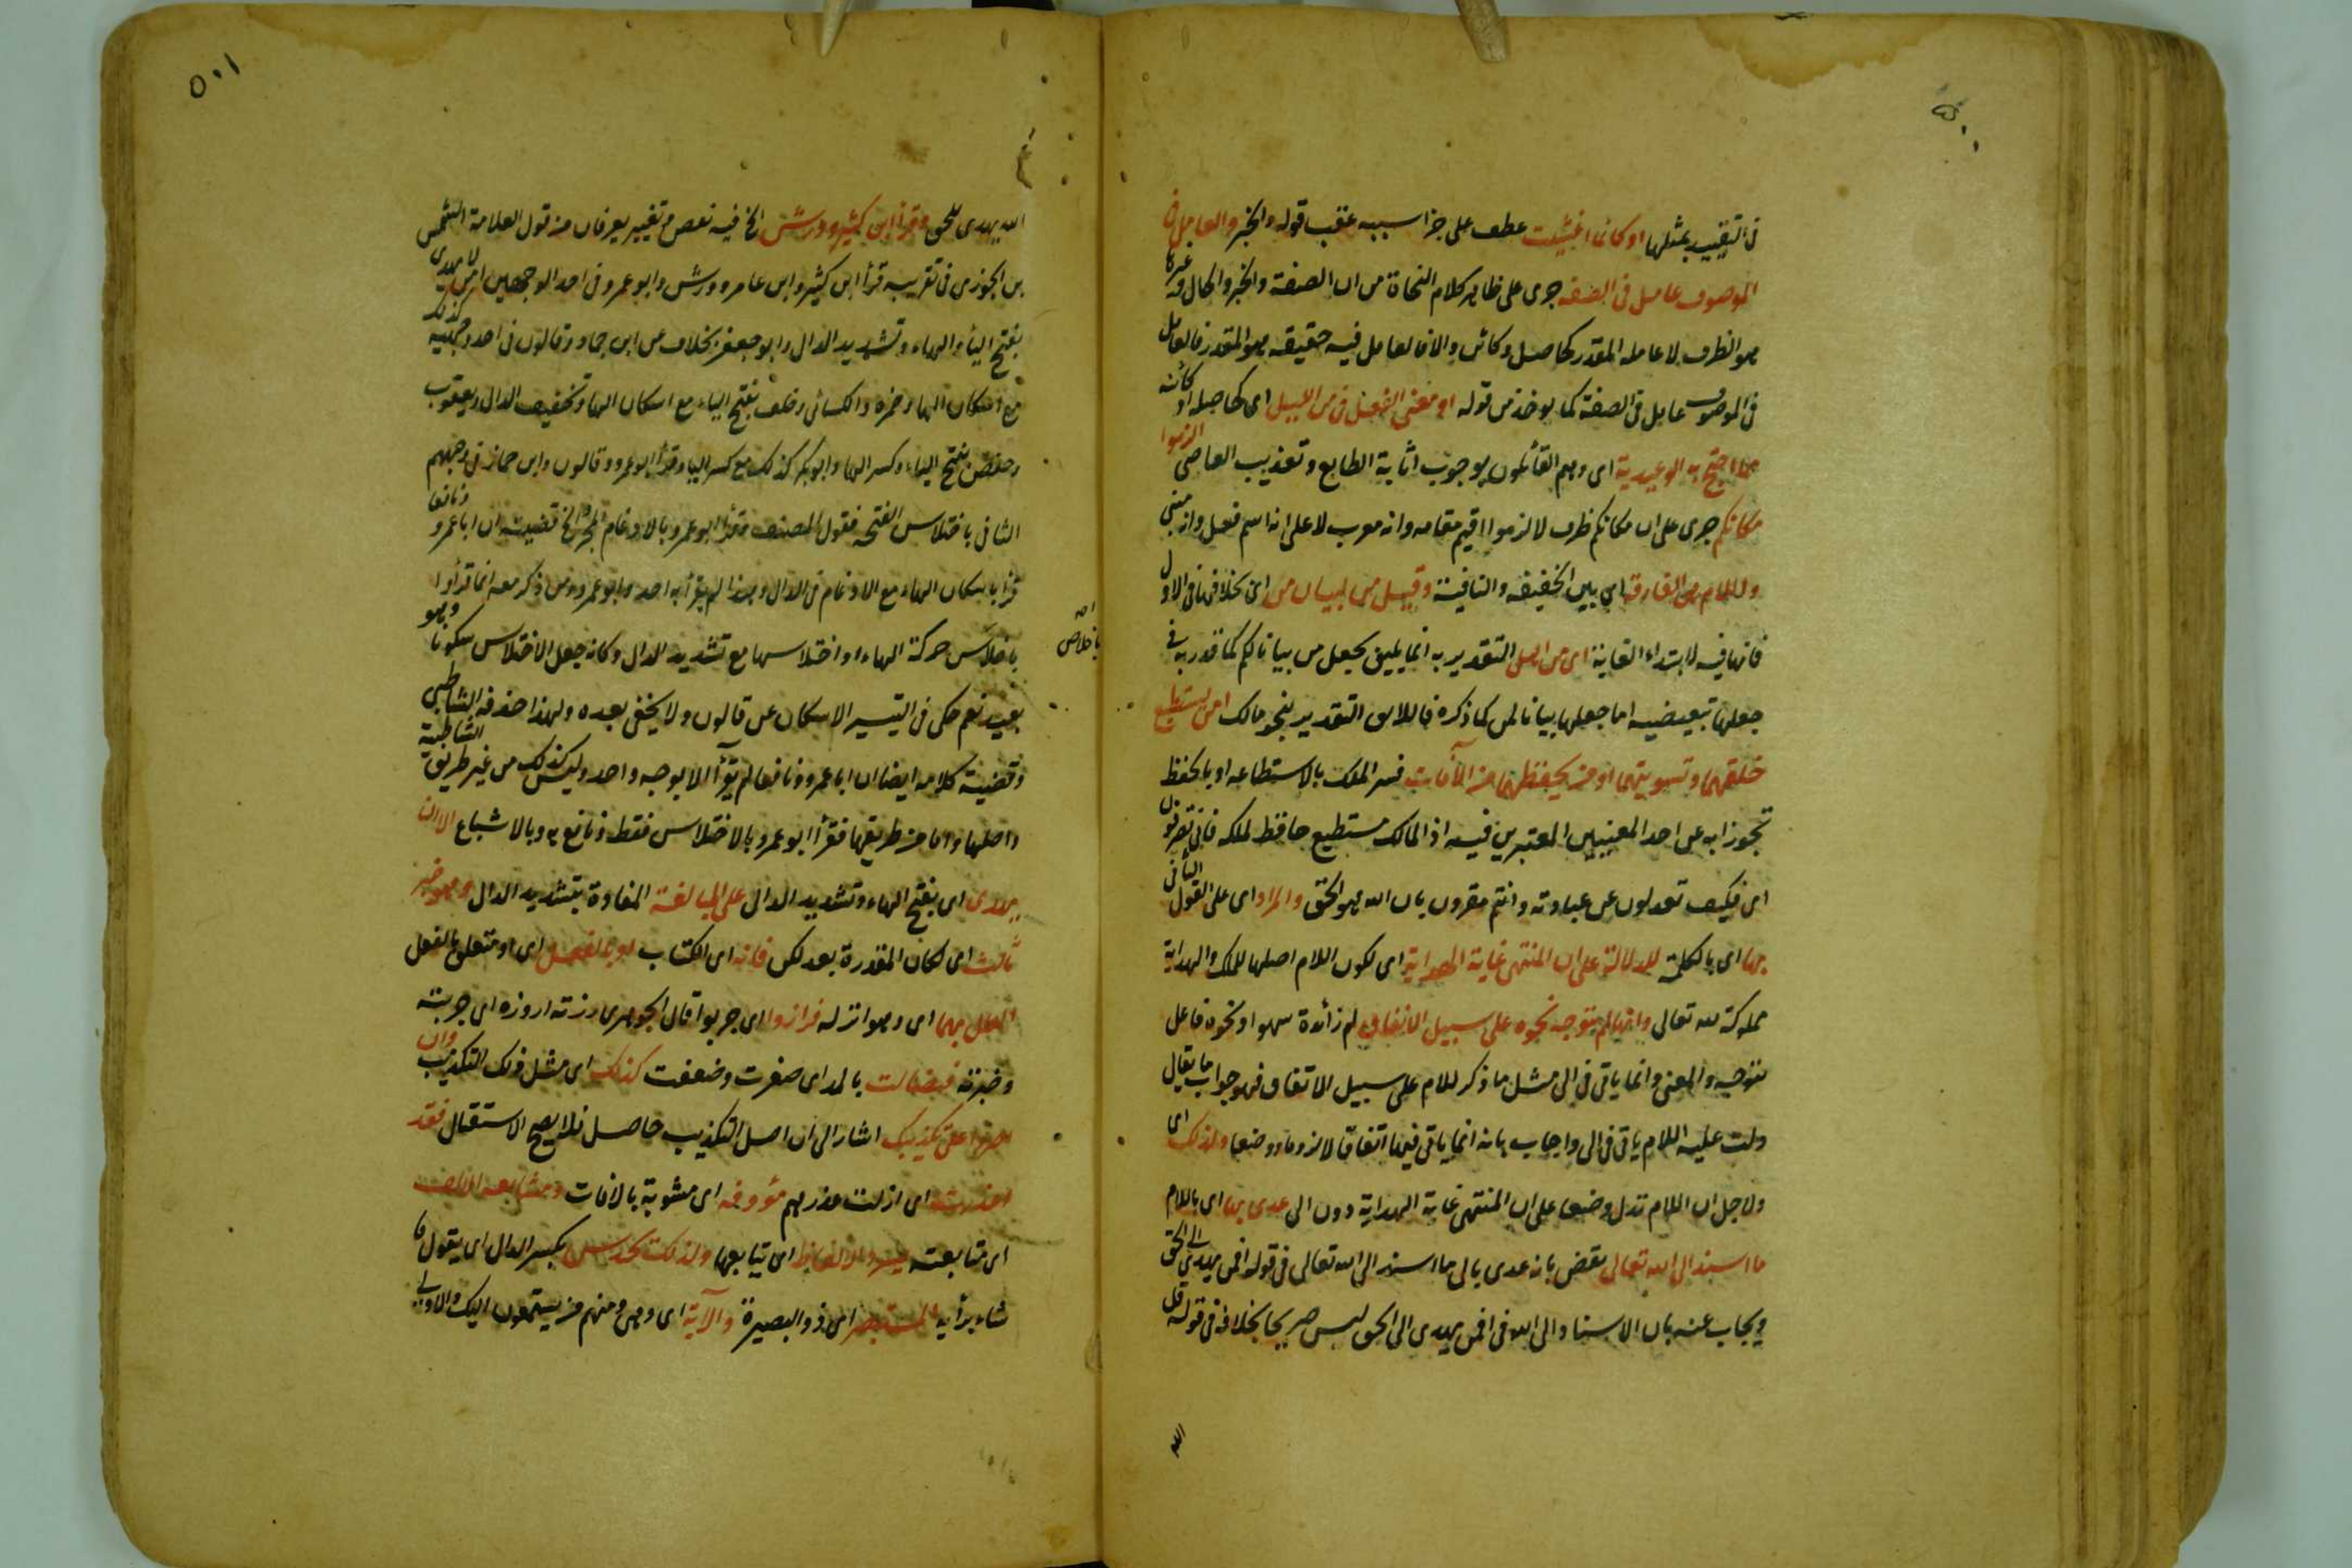 ٥٠٠
في التقييد بمثلها او كانما اغشيت عطف على جزا سببه عقب قوله والخبر والعامل في
الموصوف عامل في الصفة جرى على ظاهر كلام النحاة من ان الصفة والخبر والحال وغيرها
هو الظرف لا عامله المقدر كحاصل وكائن والا فالعامل فيه حقيقة هو المقدر فالعامل
في الموصوف عامل في الصفة كما يوخذ من قوله او معنى الفعل في من الليل اى كحاصلة او كائنة
مما احتج به الوعيدية اى وهم القائلون بوجوب اثابة الطايع وتعذيب العاصى الزموا
مكانكم جرى على ان مكانكم ظرف لا لزموا اقيم مقامه وانه معرب لا على انه اسم فعل وانه مبنى
واللام هى الفارقة اى بين الخفيفة والنافية وقيل من لبيان من اى بخلافها في الاول
فانها فيه لابتداء الغاية اى من اهل التقدير به انما يليق بجعل من بيانا لكم كما قدر به في
جعلها تبعيضيه اما جعلها بيانا لمن كما ذكره فاللايق التقدير بنحو مالك امن يستطيع
خلقهما وتسويتهما او من يحفظهما من الآفات فسر الملك بالاستطاعه او بالحفظ
تجوزا به عن احد المعنيين المعتبرين فيه اذ المالك مستطيع حافظ لملكه فانى تصرفون
اى فكيف تعدلون عن عبادته وانتم مقرون بان الله هو الحق والمراد اى على القول الثانى
بها اى بالكلمة للدلالة على ان المنتهى غاية الهداية اى لكون اللام اصلها للملك والهداية
مملوكة لله تعالى وانها لم يتوجه نحوه على سبيل الاتفاق لم زائدة سهوا ونحوه فاعل
يتوجه والمعنى وانما ياتى في الى مثل ما ذكر للام على سبيل الاتفاق فهو جواب ما يقال
دلت عليه اللام ياتى في الى واجاب بانه انما ياتى فيها اتفاقا لا لزوما ووضعا ولذلك اى
ولاجل ان اللام تدل وضعا على ان المنتهى غاية الهداية دون الى عدى بها اى باللام
ما اسند الى الله تعالى نقض بانه عدى بالى ما اسند الى الله تعالى في قوله افمن يهدى الى الحق
ويجاب عنه بان الاسناد الى الله في افمن يهدى الى الحق ليس صريحا بخلافه في قوله قل
الله
٥٠١
الله يهدى للحق وقرأ ابن كثير وورش الخ فيه نقص وتغيير يعرفان من قول العلامة الشمس
بن الجوزى في تقريبه قرأ ابن كثير وابن عامر وورش وابو عمرو في احد الوجهين امن لا يهدى
بفتح الياء والهاء وتشديد الدال وابو جعفر بخلاف عن ابن جماز وقالون في احد وجهيه كذلك
مع اسكان الهاء وحمزه والكسائى وخلف بفتح الياء مع اسكان الهاء وتخفيف الدال ويعقوب
وحفص بفتح الياء وكسر الهاء وابو بكر كذلك مع كسر الياء وقرأ ابو عمرو وقالون وابن جماز في وجههم
الثانى باختلاس الفتحه فقول المصنف وقرأ ابو عمرو بالادغام المجرد الخ قضيته ان ابا عمرو ونافعا
قرآ باسكان الهاء مع الادغام في الدال وبهذا لم يقرأ به احد وابو عمرو ومن ذكر معه انما قرأوا
باخلاص حركة الهاء او اختلاسها مع تشديد الدال وكانه جعل الاختلاس سكونا وهو
بعيد نعم حكى في التيسير الاسكان عن قالون ولا يخفى بعده ولهذا حذفه الشاطبى
وقضية كلامه ايضا ان ابا عمرو ونافعا لم يقرآ الا بوجه واحد وليس كذلك من غير طريق الشاطبية
واصلها واما من طريقها فقرأ ابو عمرو بالاختلاس فقط ونافع به وبالاشباع الا ان
يهدى اى بفتح الهاء وتشديد الدال على المبالغة المفادة بتشديد الدال وهو خبر
ثالث اى لكان المقدرة بعد لكن فانه اى الكتاب او بالفعل اى او متعلق بالفعل
المعلل بهما اى وهو انزله فرازوا اى جربوا قال الجوهرى رزته اروزه اى جربته
وخبرته فتضالت بالمد اى صغرت وضعفت كذلك اى مثل ذلك التكذيب وان
اصروا على تكذيبك اشار الى ان اصل التكذيب حاصل فلا يصح الاستقبال فقد
اعذرت اى ازلت عذرهم مؤوفه اى مشوبة بالافات ومشايعه الالف
اى متابعته الالفاظ اى تتابعها ولذلك تحدس بكسر الدال اى يقول ما
شاء برأيه المستبصر اى ذو البصيرة والآية اى وهى ومنهم من يستمعون اليك والاولى
باخلاص